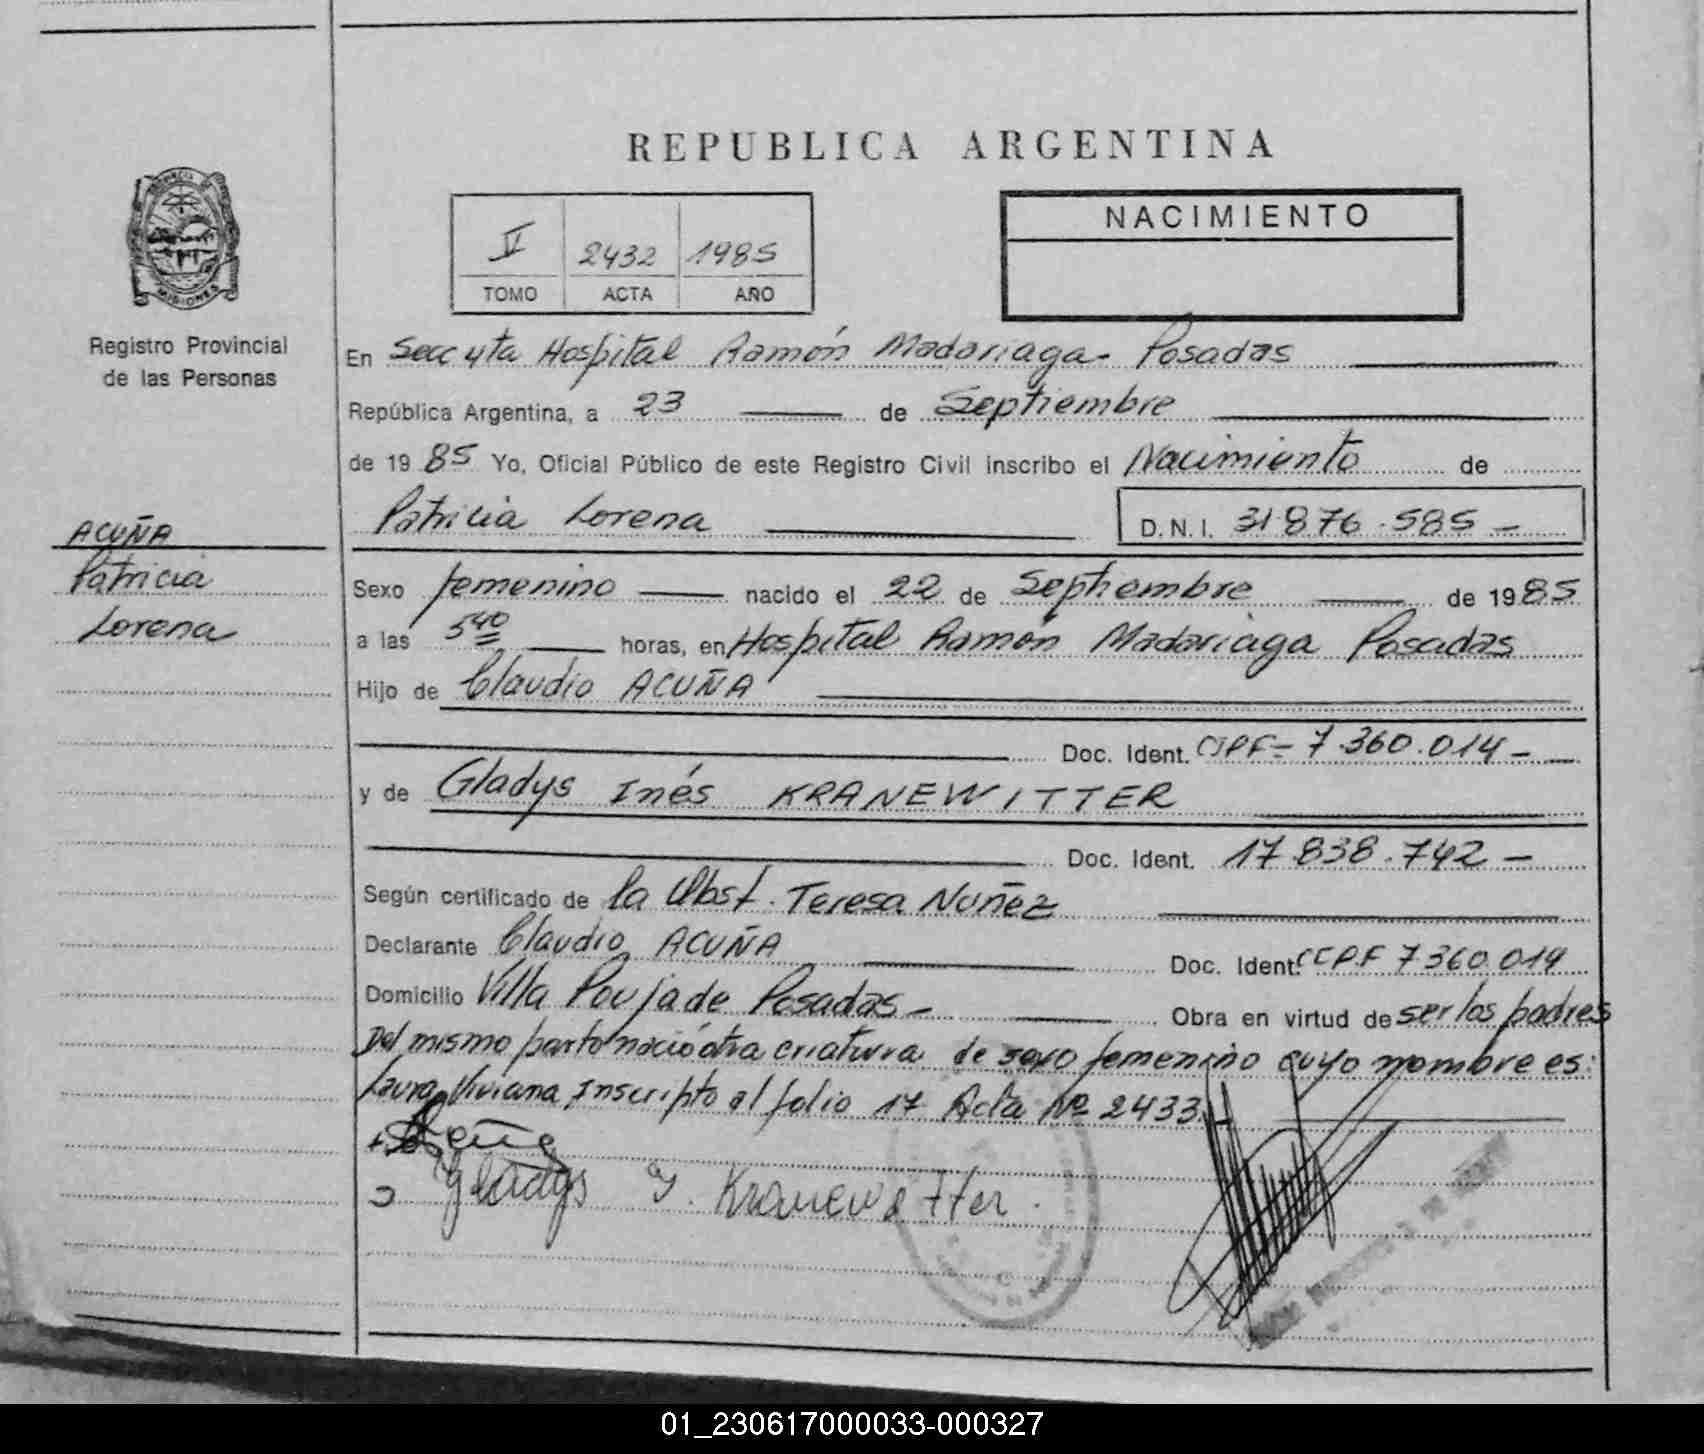 REPUBLICA ARGENTINA
V 2432 1985
TOMO ACTA AÑO
NACIMIENTO
MISIONES
Registro Provincial
de las Personas
ACUÑA
Patricia
Lorena
En Secc 4ta Hospital Ramón Madariaga - Posadas
República Argentina, a 23 de Septiembre
de 1985 Yo, Oficial Público de este Registro Civil inscribo el Nacimiento de
Patricia Lorena D.N.I. 31876.585 -
Sexo femenino nacido el 22 de Septiembre de 1985
a las 5 40 horas, en Hospital Ramón Madariaga Posadas
Hijo de Claudio ACUÑA
Doc. Ident. CIPF= 7.360.014 -
y de Gladys Inés KRANEWITTER
Doc. Ident. 17.838.742 -
Según certificado de la Obst. Teresa Nuñez
Declarante Claudio ACUÑA Doc. Ident. 7360.014
Domicilio Villa Poujade Posadas - Obra en virtud de ser los padres
Del mismo parto nació otra criatura de sexo femenino cuyo nombre es:
Laura Viviana Inscripto al folio 17 Acta Nº 2433.-
Gladys Y. Kranewitter.
01_230617000033-000327